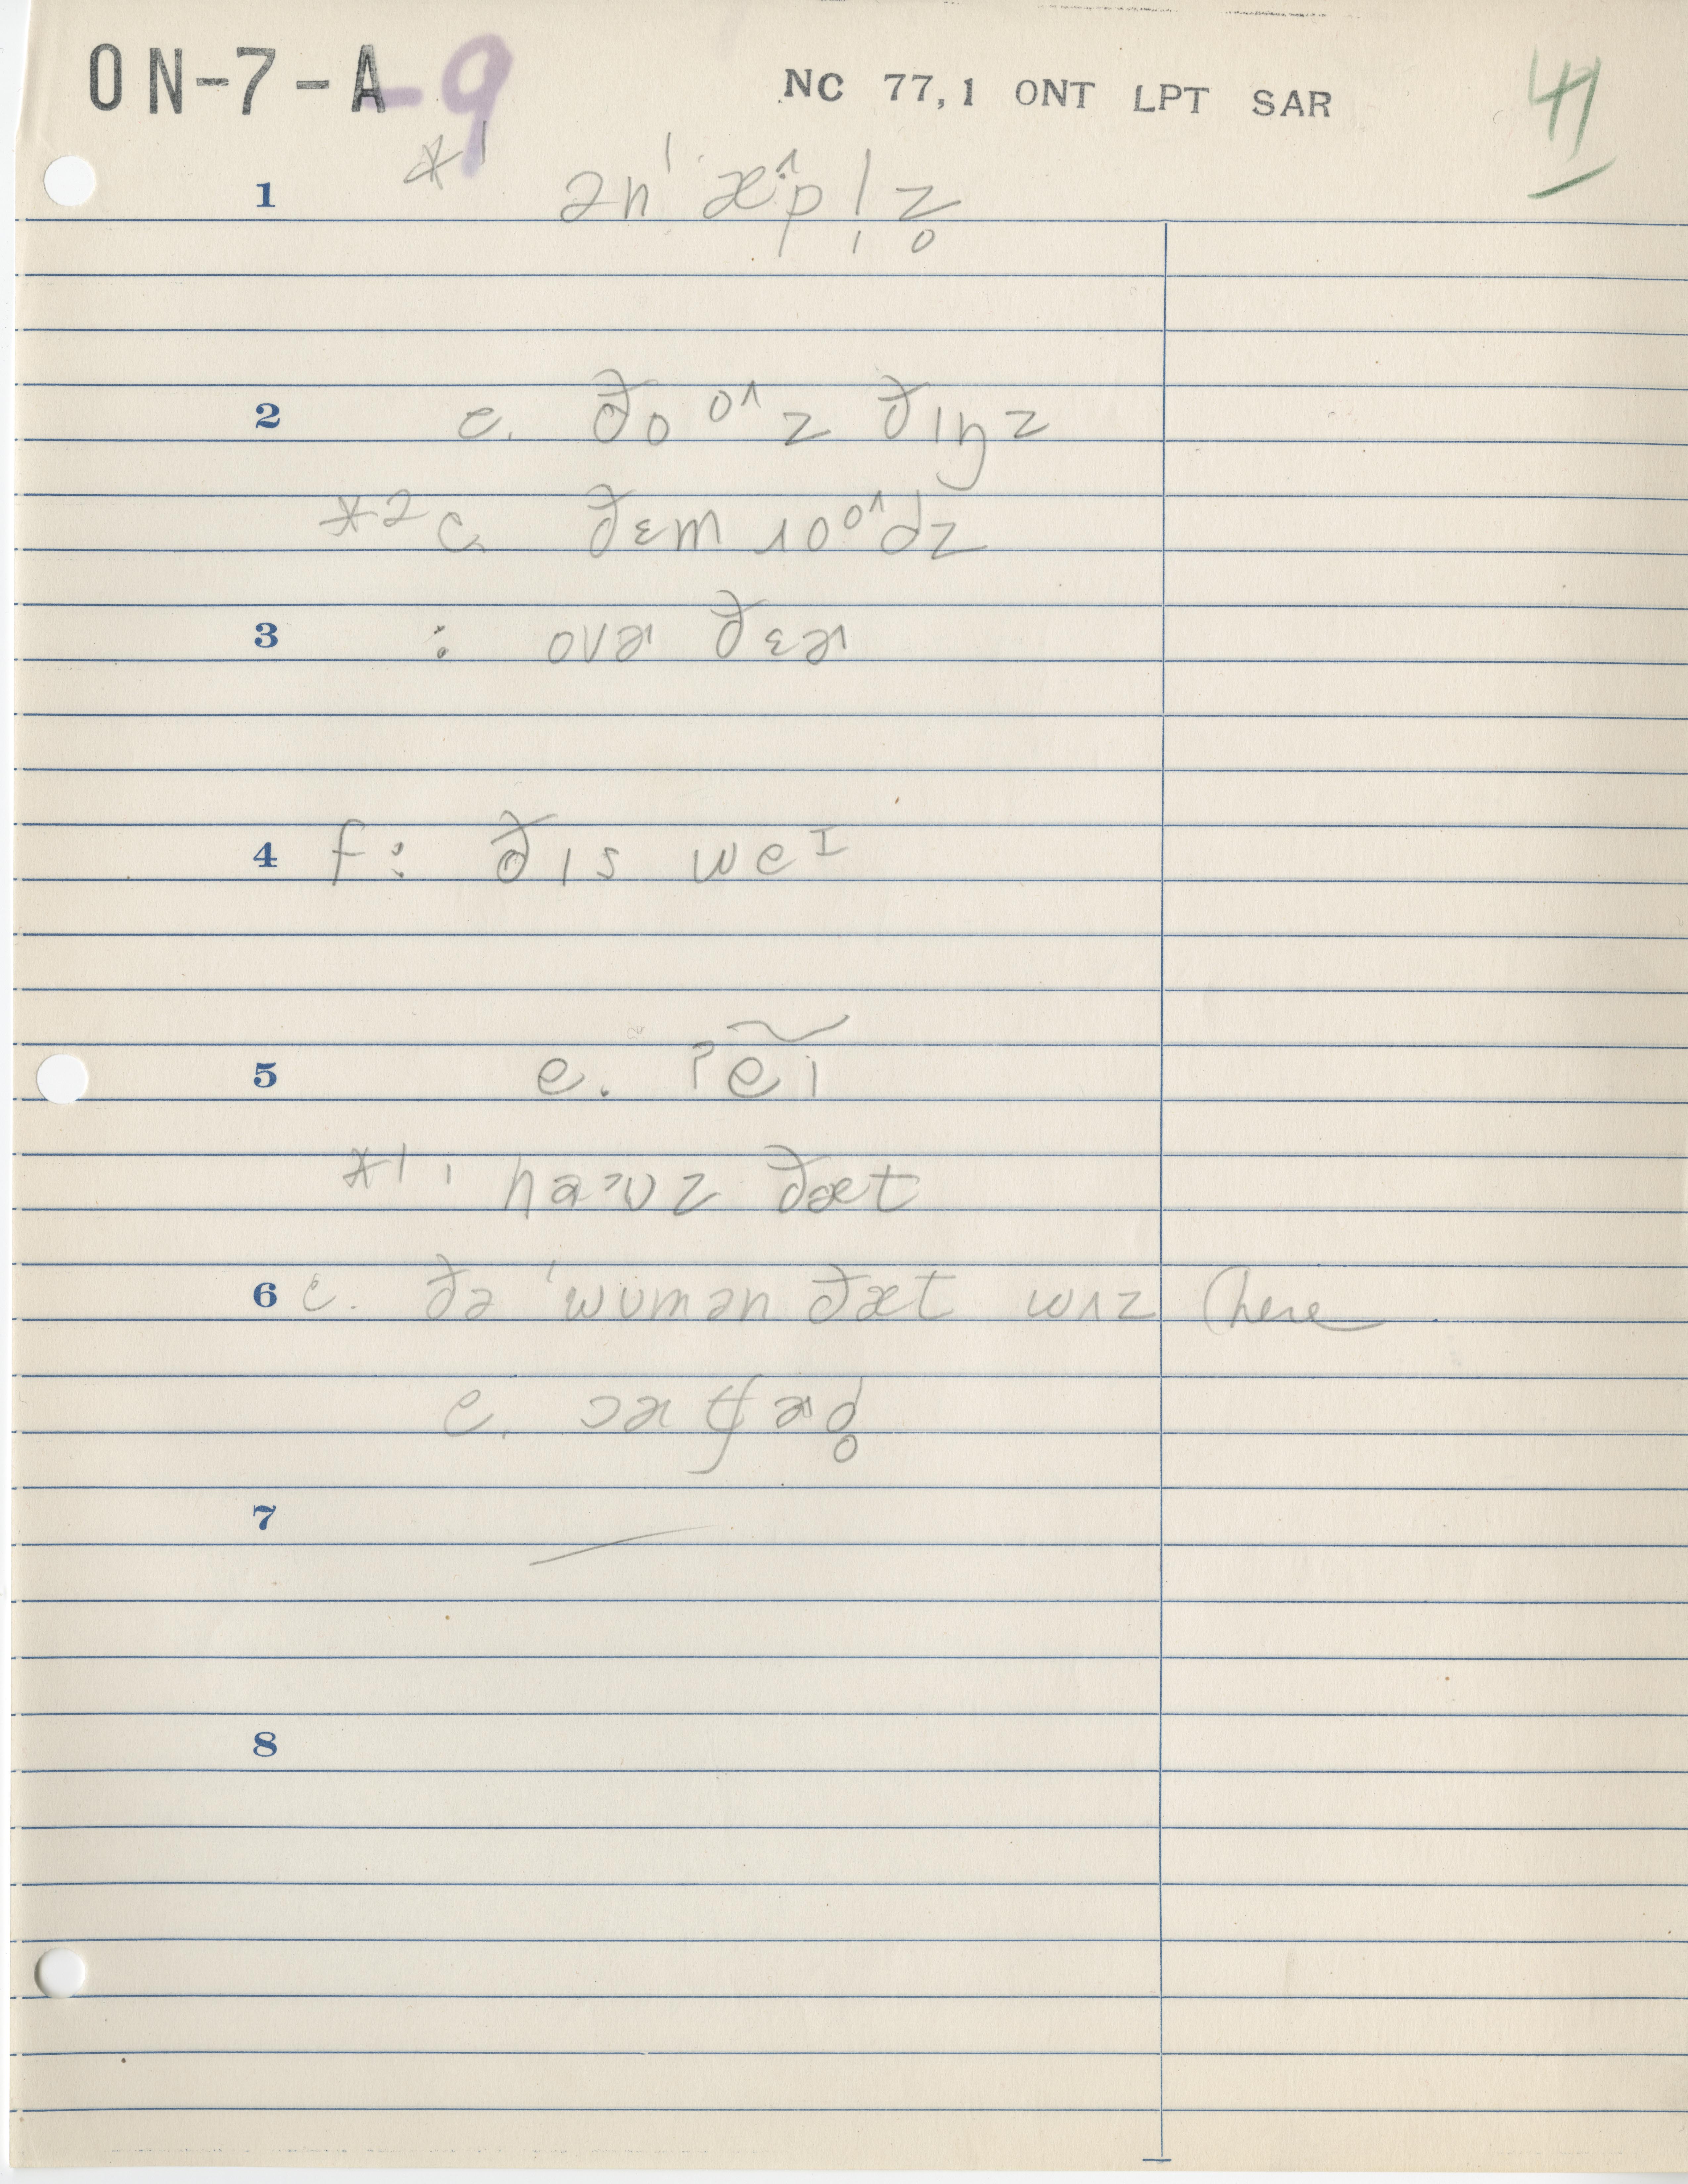 ON-7-A-9 NC 77,1 ONT LPT SAR 41
1 *1 ən'æ^pl̩z̥
2 c. ðoo^z ðɪŋz
*2 c. ðɛm roo^dz
3 : ovɚ ðɛɚ
4 f: ðɪs weɪ
5 e. ʔẽĩ
*1: haʊz ðæt
6 c. ðə 'wʊmən ðæt wʌz (here
c. ɔɚtʃɚd̥
7 —
8